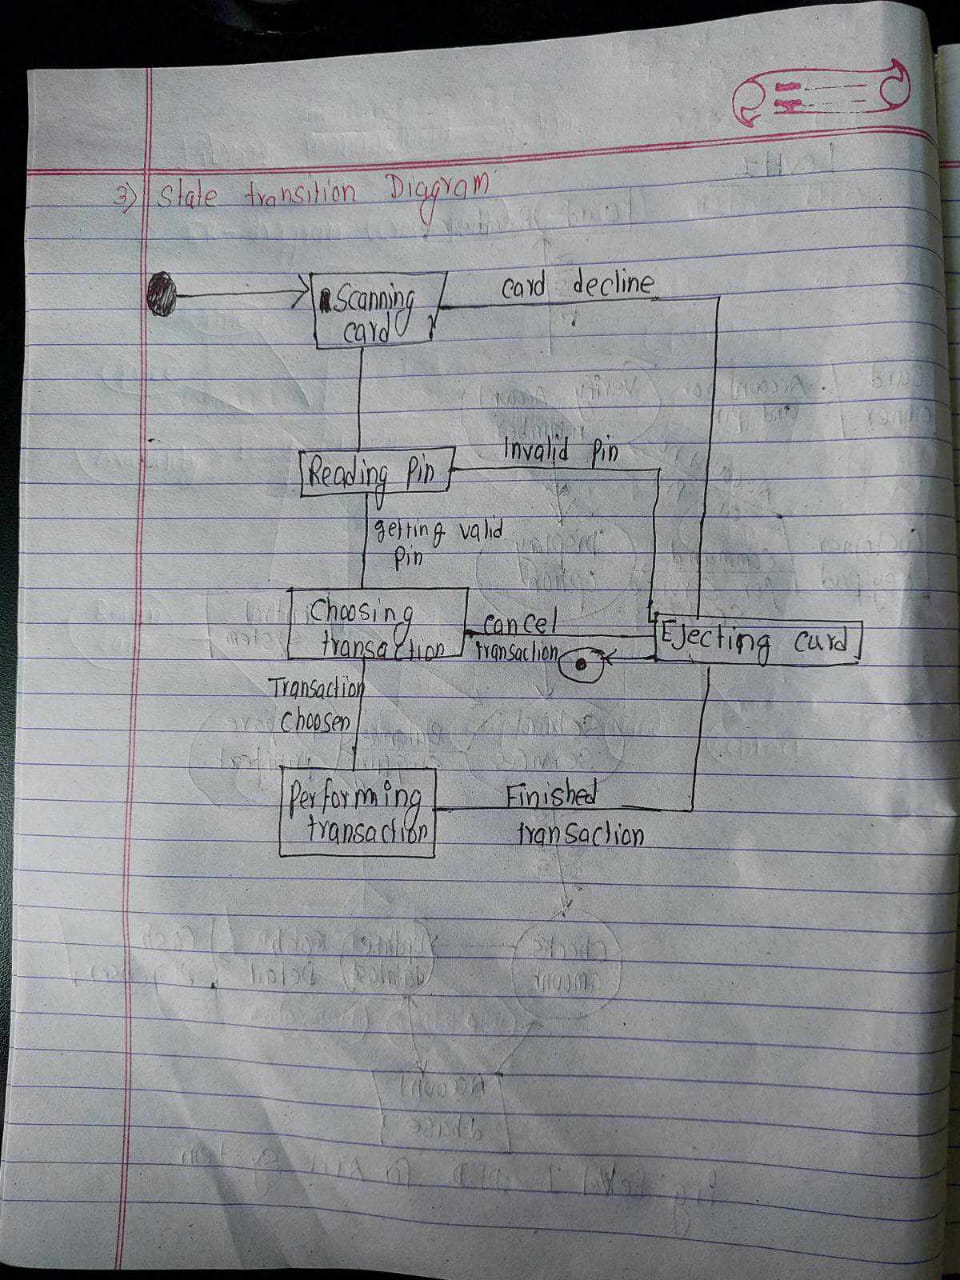 3) State transition Diagram
Scanning
card
card decline
Reading Pin
Invalid pin
getting valid
pin
Choosing
transaction
cancel
transaction
Ejecting card
Transaction
choosen
Performing
transaction
Finished
transaction